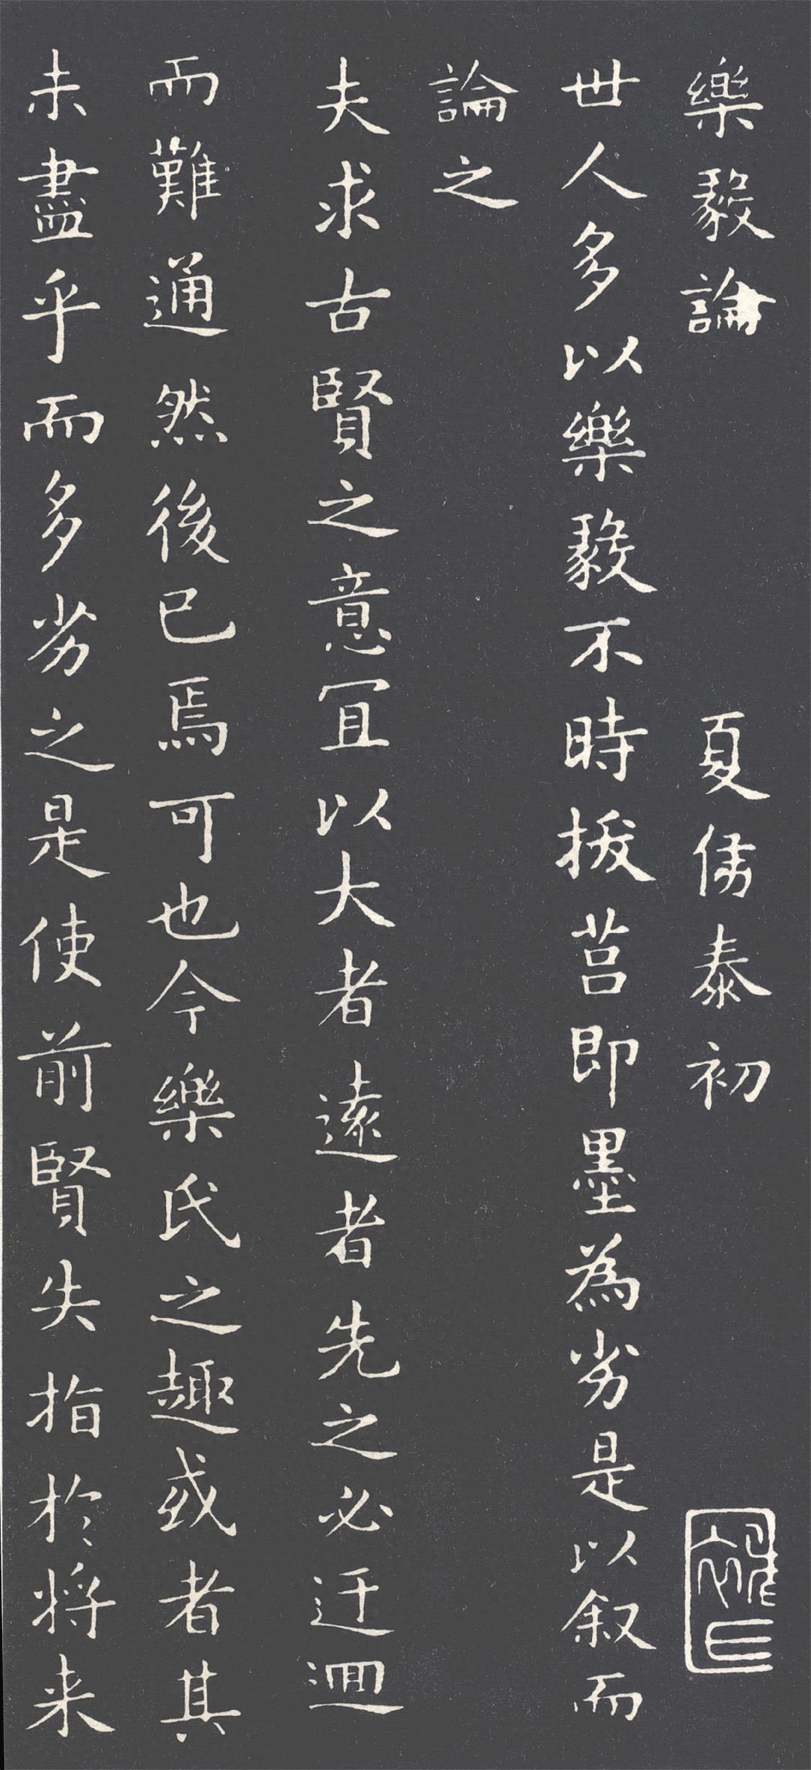 樂毅論 夏侯泰初
世人多以樂毅不時拔莒即墨為劣是以叙而
論之
夫求古賢之意冝以大者遠者先之必迂迴
而難通然後已焉可也今樂氏之趣或者其
未盡乎而多劣之是使前賢失指於将来